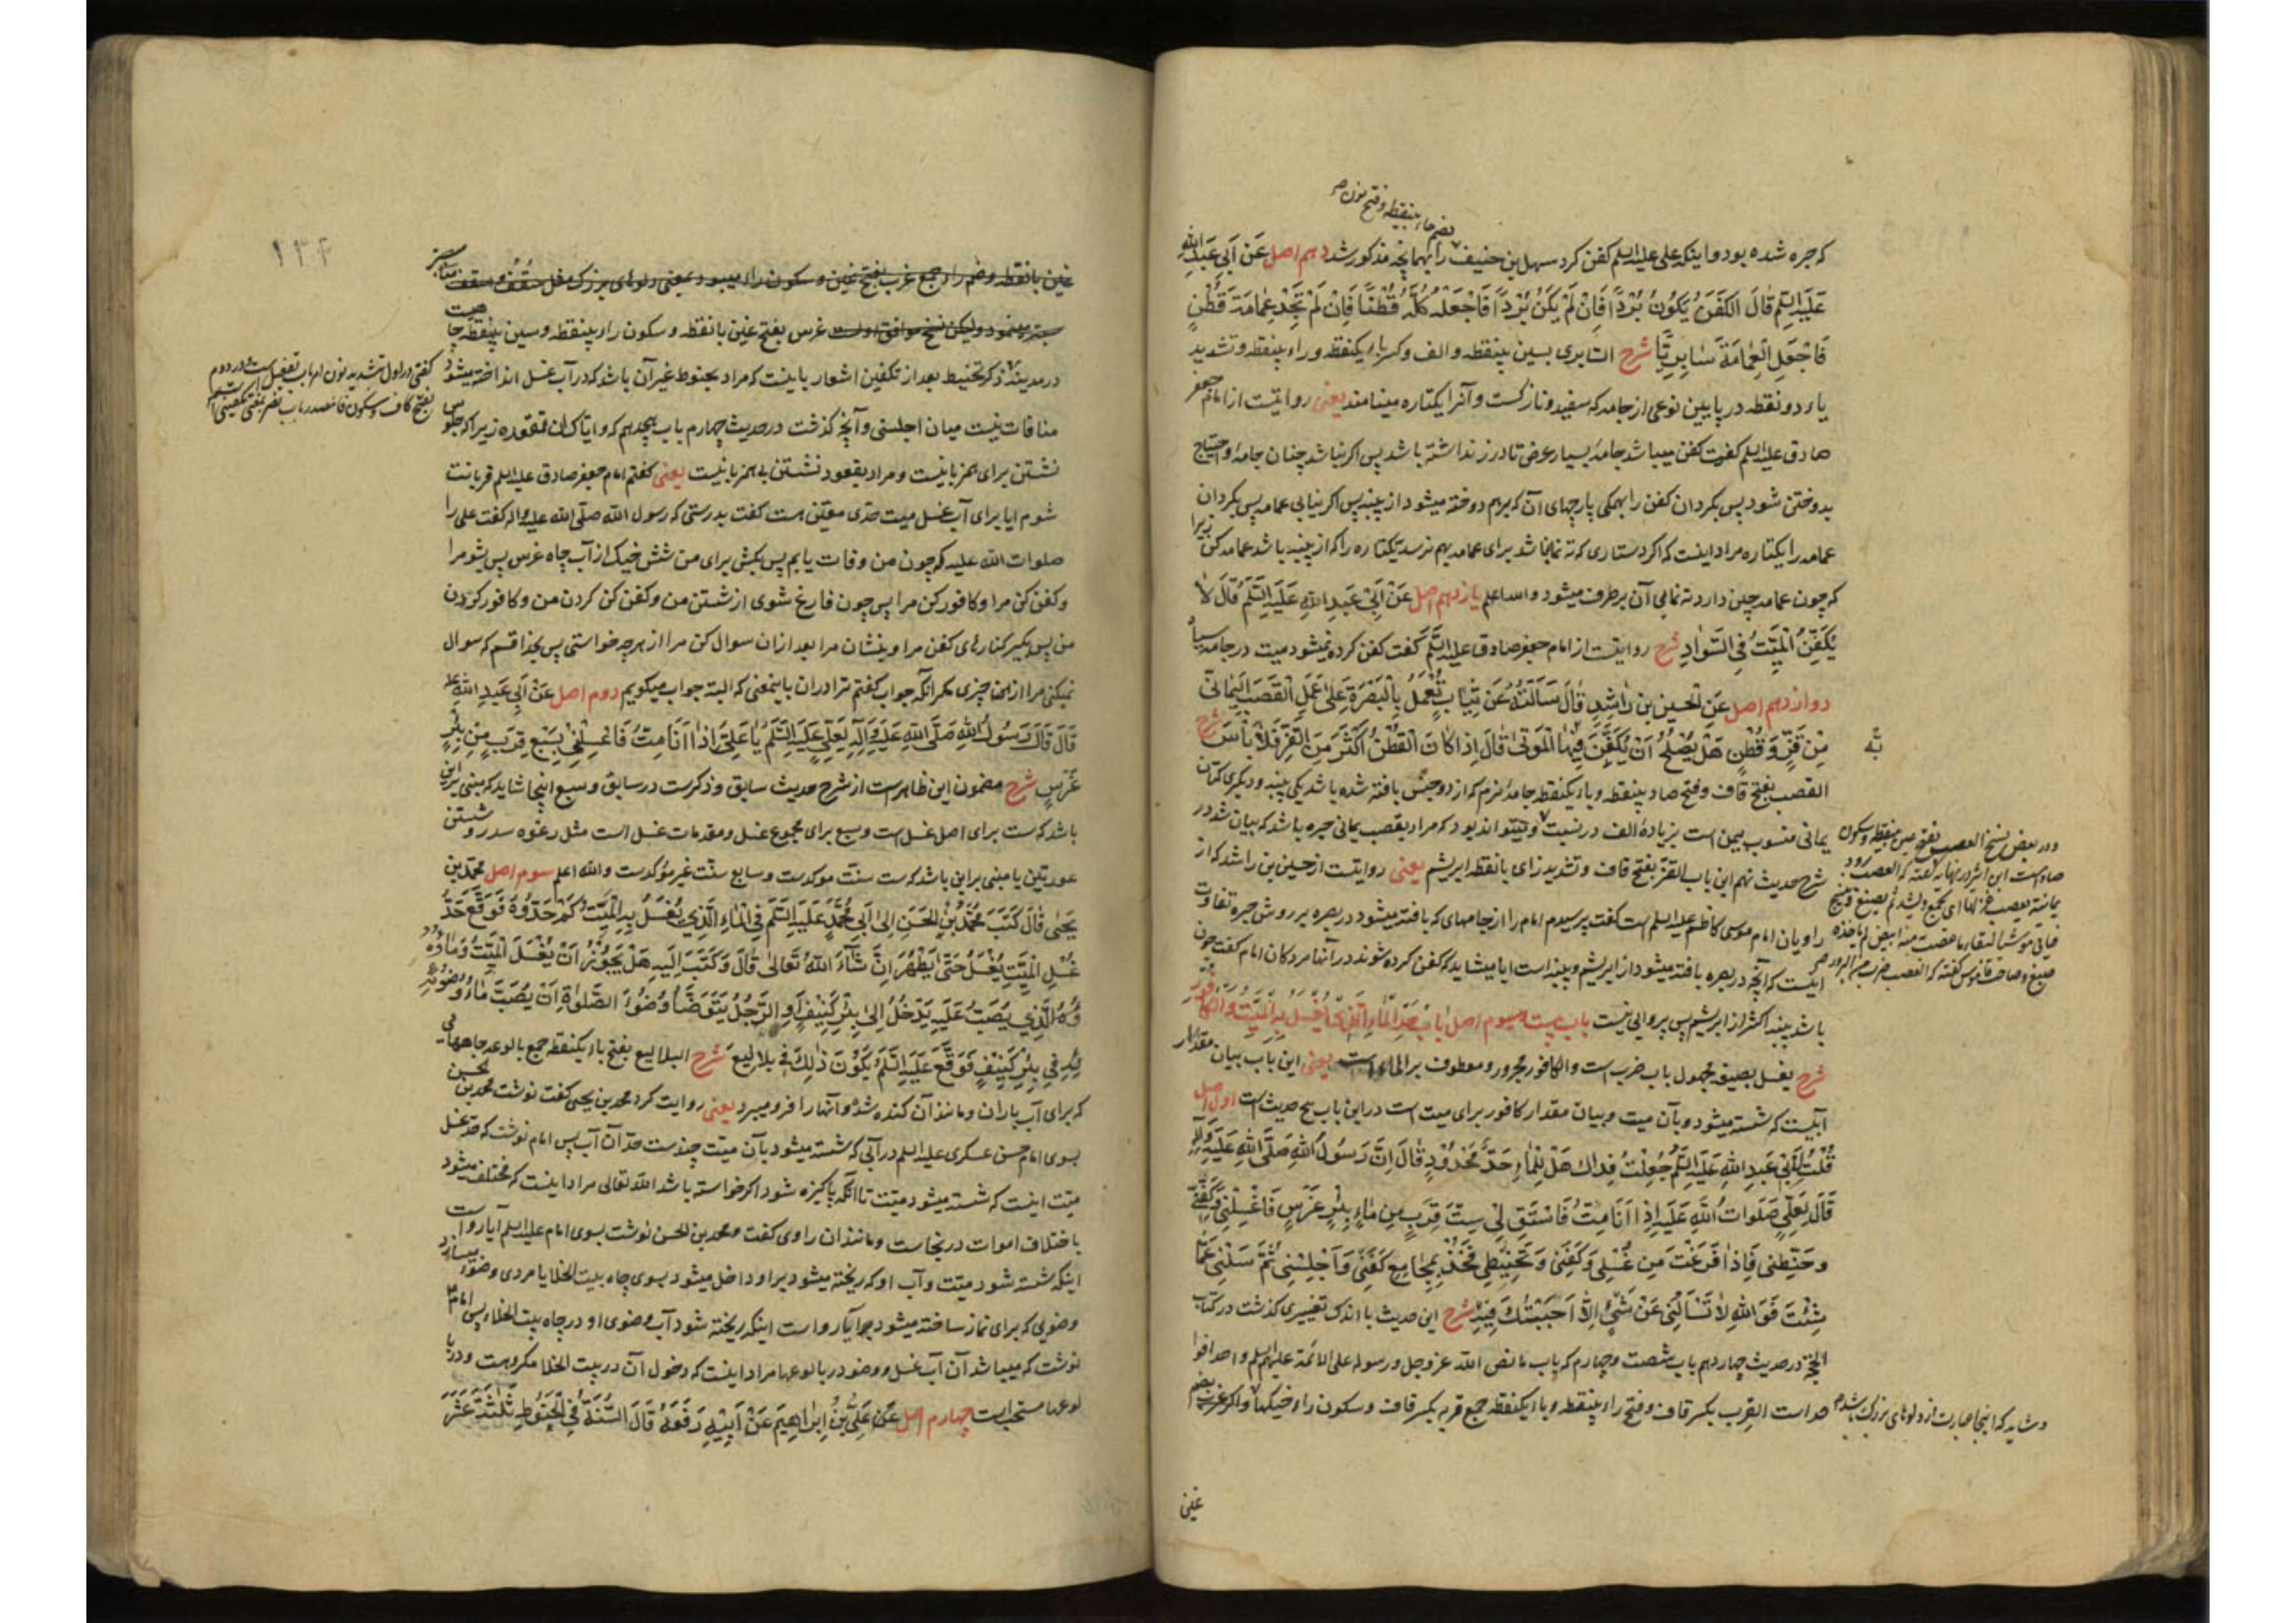 بضم حاء بینقطه و فتح نون صح
که جبره شده بود و اینکه علی علیه السلم کفن کرد سهل بن حنیف را بهمانچه مذکور شد دهم اصل عَن اَبی عَبدِ اللهِ
عَلَیهِ السَّلم قالَ الکَفَنُ یَکُونُ بُرْداً فَاِنْ لَمْ یَکُنْ بُرْداً فَاجْعَلْهُ کُلَّهُ قُطْناً فَاِنْ لَمْ تَجِدْ عِمامَةَ قُطْنٍ
فَاجْعَلِ العِمامَةَ سابِرِیّاً شرح السابری بسین بینقطه و الف و کسر باء یکنقطه و راء بینقطه و تشدید
یاء دو نقطه در پایین نوعی از جامه که سفید و نازکست و آنرا یکتاره مینامند یعنی روایتست از امام جعفر
صادق علیه السلم گفت کفن میباشد جامهٔ بسیار عرض تا درز نداشته باشد پس اگر نباشد چنان جامهٔ و احتیاج
بدوختن شود پس بگردان کفن را بهمگی پارچهای آن که برهم دوخته میشود از پنبه پس اگر نیابی عمامه پس بگردان
عمامه را یکتاره مراد اینست که اگر دستاری که ته نما نباشد برای عمامه بهم نرسد یکتاره را که از پنبه باشد عمامه کن زیرا
که چون عمامه چین دارد ته نمایی آن برطرف میشود و الله اعلم یازدهم اصل عَنْ اَبی عَبدِ اللهِ عَلَیهِ السَّلَم قالَ لا
یُکَفَّنُ المَیِّتُ فِی السَّوادِ شرح روایتست از امام جعفر صادق علیه السَّلم گفت کفن کرده نمیشود میت در جامه سیاه
دوازدهم اصل عَن الحسین بن راشِدٍ قالَ سَاَلتُهُ عَن ثِیابٍ تُعمَلُ بِالبَصرَةِ عَلی عَمَلِ القَصَبِ الیَمانِیّ
مِن قَزٍّ وَ قُطنٍ هَل یَصلُحُ اَن یُکَفَّنَ فِیهَا المَوتی قالَ اِذا کانَ القُطنُ اَکثَرَ مِنَ القَزِّ فَلا بَأسَ شرح
القصب بفتح قاف و فتح صاد بینقطه و باء یکنقطه جامهٔ نرم که از دو جنس بافته شده باشد یکی پنبه و دیگری کتان
یمانی منسوب بیمن است بزیادهٔ الف در نسبت و میتواند بود که مراد بقصب یمانی حبره باشد که بیان شد در
شرح حدیث نهم این باب القز بفتح قاف و تشدید زای بانقطه ابریشم یعنی روایتست از حسین بن راشد که از
راویان امام موسی کاظم علیه السلم است گفت پرسیدم امام را از جامهای که بافته میشود در بصره بر روش حبره تفاوت
اینست که آنچه در بصره بافته میشود از ابریشم و پنبه است ایا میشاید که کفن کرده شوند در آنها مردگان امام گفت چون
باشد پنبه اکثر از ابریشم پس پروایی نیست باب بیست و سیوم اصل بابُ حَدِّ الماءِ الَّذِی یُغسَلُ بِهِ المَیِّتُ وَ الکافُورِ
شرح یغسل بصیغه مجهول باب ضرب است و الکافور مجرور و معطوف بر الماء است یعنی این باب بیان مقدار
آبیست که شسته میشود بآن میت و بیان مقدار کافور برای میت است در این باب پنج حدیث است اول اصل
قُلتُ لِاَبِی عَبدِ اللهِ عَلَیهِ السَّلم جُعِلتُ فِداکَ هَل لِلماءِ حَدٌّ مَحدُودٌ قالَ اِنَّ رَسُولَ اللهِ صَلَّی اللهُ عَلَیهِ وَ آلِهِ
قالَ لِعَلِیٍّ صَلَواتُ اللهِ عَلَیهِ اِذا اَنَا مِتُّ فَاستَقِ لِی سِتَّ قِرَبٍ مِن ماءِ بِئرِ غَرسٍ فَاغسِلنِی وَ کَفِّنِّی
وَ حَنِّطنِی فَاِذا فَرَغتَ مِن غُسلِی وَ کَفَنِی وَ تَحنِیطِی فَخُذ بِمَجامِعِ کَفَنِی وَ اَجلِسنِی ثُمَّ سَلنِی عَمّا
شِئتَ فَوَ اللهِ لا تَسأَلُنِی عَن شَیءٍ اِلّا اَجَبتُکَ فِیهِ شرح این حدیث با اندک تغییری گذشت در کتاب
الحجة در حدیث چهاردهم باب شصت و چهارم که باب ما نص الله عز و جل و رسوله علی الائمة علیهم السلم واحدا فوا
حدا است القرب بکسر قاف و فتح راء بینقطه و باء یکنقطه جمع قربه بکسر قاف و سکون راء خیکها و اگر غرب بضم
ودر بعض نسخ العصب بفتح عین بینقطه و سکون
صاد است ابن اثیر در نهایه گفته که العصب برود
یمانیة یعصب غزلها ای یجمع و یشد ثم یصبغ و ینسج
فیأتی موشیا لبقاء ما عصب منه ابیض لم یأخذه
صبغ و صاحب قاموس گفته که العصب ضرب من البرود صح
و شاید که اینجا عبارت از دلوهای بزرگ باشد صح
غین
۱۳۴
غین بانقطه و ضم راء جمع غرب بفتح غین و سکون راء میبود بمعنی دلوهای بزرگ مثل سُقُف و سقف
میبود ولیکن نسخ موافق اولست غرس بفتح غین بانقطه و سکون راء بینقطه و سین بینقطه چا هیست
در مدینه ذکر تحنیط بعد از تکفین اشعار باینست که مراد بحنوط غیر آن باشد که در آب غسل انداخته میشود
منافات نیست میان اجلسنی و آنچه گذشت در حدیث چهارم باب هیجدهم که و ایاک ان تقعده زیرا که جلوس
نشستن برای همزبانیست و مراد بقعود نشستن بی همزبانیست یعنی گفتم امام جعفر صادق علیه السلم قربانت
شوم ایا برای آب غسل میت حدّی معیّن هست گفت بدرستی که رسول الله صلّی الله علیه و آله گفت علی را
صلوات الله علیه که چون من وفات یابم پس بکش برای من شش خیک از آب چاه غرس پس بشو مرا
و کفن کن مرا و کافور کن مرا پس چون فارغ شوی از شستن من و کفن کن کردن من و کافور کردن
من پس بگیر کنارهای کفن مرا و بنشان مرا بعد ازان سوال کن مرا از هرچه خواستی پس بخدا قسم که سوال
نمیکنی مرا از این چیزی مگر آنکه جواب گفتم ترا دران باینمعنی که البته جواب میگویم دوم اصل عَنْ اَبِی عَبدِ اللهِ علیه
قالَ قالَ رَسُولُ اللهِ صَلَّی اللهُ عَلَیهِ وَ آلِهِ لِعَلِیٍّ عَلَیهِ السَّلَم یا عَلِیُّ اِذا اَنَا مِتُّ فَاغسِلنِی بِسَبعِ قِرَبٍ مِن بِئرِ
غَرسٍ شرح مضمون این ظاهر است از شرح حدیث سابق و ذکر ست در سابق و سبع اینجا شاید که مبنی بر این
باشد که ست برای اصل غسل است و سبع برای مجموع غسل و مقدمات غسل است مثل رغوه سدر و شستن
عورتین یا مبنی بر این باشد که ست سنّت موکدست و سابع سنّت غیر مؤکدست و الله اعلم سوم اصل محمّد بن
یَحیی قالَ کَتَبَ مُحَمَّدُ بنُ الحَسَنِ اِلی اَبِی مُحَمَّدٍ عَلَیهِ السَّلَم فِی الماءِ الَّذِی یُغسَلُ بِهِ المَیِّتُ کَم حَدُّهُ فَوَقَّعَ حَدُّ
غُسلِ المَیِّتِ یُغسَلُ حَتّی یَطهُرَ اِن شاءَ اللهُ تَعالی قالَ وَ کَتَبَ اِلَیهِ هَل یَجُوزُ اَن یُغسَلَ المَیِّتُ وَ ماؤُهُ
الَّذِی یُصَبُّ عَلَیهِ یَدخُلُ اِلی بِئرِ کَنِیفٍ اَوِ الرَّجُلُ یَتَوَضَّأُ وُضُوءَ الصَّلوةِ اَن یُصَبَّ ماءُ وُضُوئِهِ
فِی بِئرِ کَنِیفٍ فَوَقَّعَ عَلَیهِ السَّلَم یَکُونُ ذلِکَ فِی بَلالِیعَ شرح البلالیع بفتح باء یکنقطه جمع بالوعه چاههایی
که برای آب باران و مانند آن کنده شده و آنها را فرو میبرد یعنی روایت کرد محمد بن یحیی گفت نوشت محمد بن الحسن
بسوی امام حسن عسکری علیه السلم در آبی که شسته میشود بآن میّت چندست حدّ آن آب پس امام نوشت که حدّ غسل
میّت اینست که شسته میشود میّت تا آنکه پاکیزه شود اگر خواسته باشد الله تعالی مراد اینست که مختلف میشود
باختلاف اموات در نجاست و مانند ان راوی گفت و محمد بن الحسن نوشت بسوی امام علیه السلم آیا رواست
اینکه شسته شود میّت و آب او که ریخته میشود بر او داخل میشود بسوی چاه بیت الخلا یا مردی وضوء میسازد
وضویی که برای نماز ساخته میشود آیا رواست اینکه ریخته شود آب وضوی او در چاه بیت الخلاء پس امام
نوشت که میباشد آن آب غسل و وضو در بالوعها مراد اینست که دخول آن در بیت الخلا مکروهست و در با
لوعها مستحبست چهارم اصل عَن عَلِیِّ بنِ اِبراهِیمَ عَن اَبِیهِ رَفَعَهُ قالَ السُّنَّةُ فِی الحَنُوطِ ثَلثَةَ عَشَرَ
کفنی در اول بتشدید نون امر باب تفعیل است و در دوم
بفتح کاف و سکون فا مصدر باب نصر بمعنی تکفین است